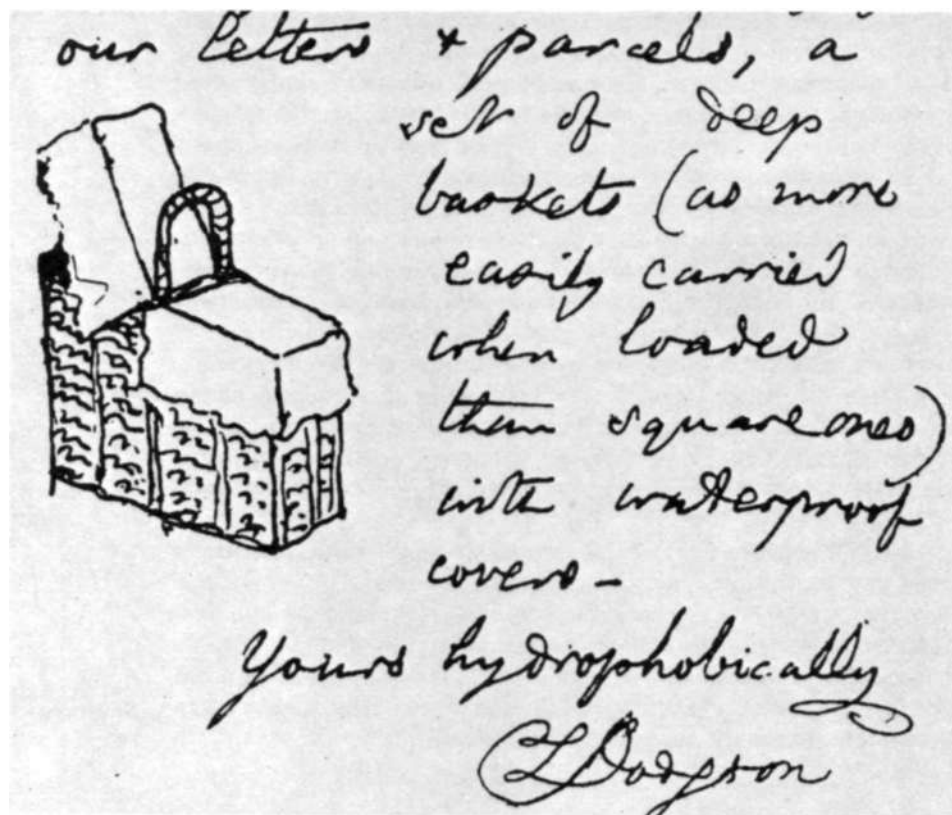 our letters & parcels, a
set of deep
baskets (as more
easily carried
when loaded
than square ones)
with waterproof
covers -
Yours hydrophobically
CL Dodgson